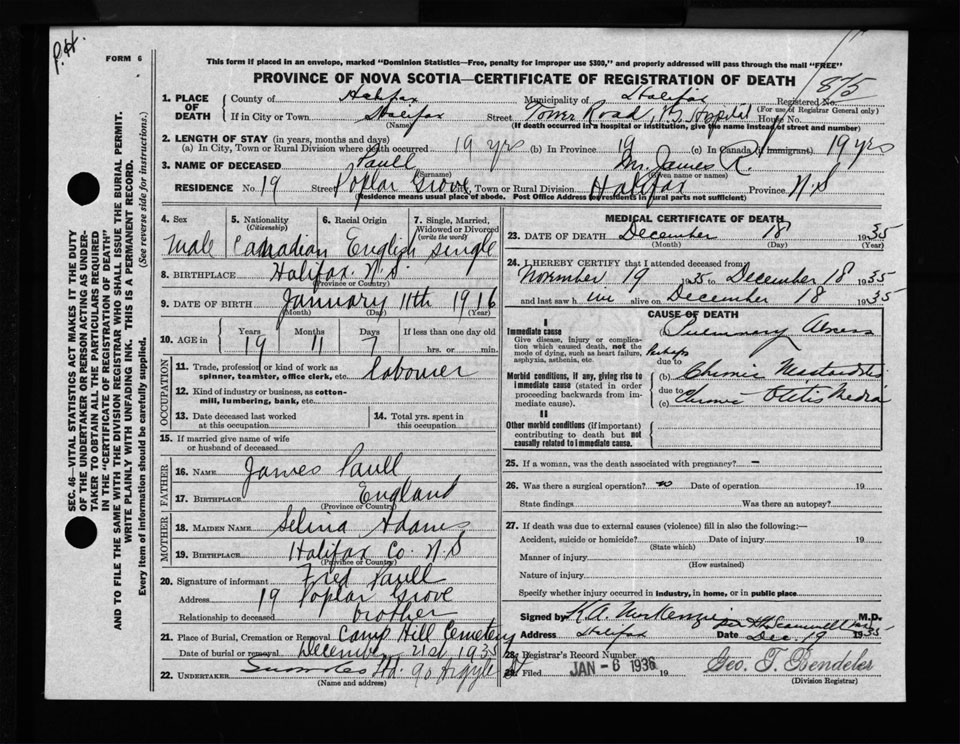 P.H.
FORM 6
This form if placed in an envelope, marked "Dominion Statistics—Free, penalty for improper use $300," and properly addressed will pass through the mail "FREE"
PROVINCE OF NOVA SCOTIA—CERTIFICATE OF REGISTRATION OF DEATH
875
1. PLACE OF DEATH County of Halifax Municipality of Halifax Registered No.
(For use of Registrar General only)
If in City or Town Halifax Street Tower Road, Hospital House No.
(Name) (If death occurred in a hospital or institution, give the name instead of street and number)
2. LENGTH OF STAY (in years, months and days)
(a) In City, Town or Rural Division where death occurred 19 yrs (b) In Province 19 (c) In Canada (if immigrant) 19 yrs
3. NAME OF DECEASED Paull Mr. James R.
(Surname) (Given name or names)
RESIDENCE No. 19 Street Poplar Grove City, Town or Rural Division Halifax Province N.S
(Residence means usual place of abode. Post Office Address for residents in rural parts not sufficient)
4. Sex Male
5. Nationality (Citizenship) Canadian
6. Racial Origin English
7. Single, Married, Widowed or Divorced (write the word) Single
8. BIRTHPLACE Halifax N.S.
(Province or Country)
9. DATE OF BIRTH January 11th 1916
(Month) (Day) (Year)
10. AGE in Years Months Days If less than one day old
19 11 7 hrs. or min.
OCCUPATION
11. Trade, profession or kind of work as spinner, teamster, office clerk, etc. labourer
12. Kind of industry or business, as cotton-mill, lumbering, bank, etc.
13. Date deceased last worked at this occupation
14. Total yrs. spent in this occupation
15. If married give name of wife or husband of deceased
FATHER
16. NAME James Paull
17. BIRTHPLACE England
(Province or Country)
MOTHER
18. MAIDEN NAME Selina Adams
19. BIRTHPLACE Halifax Co. N.S
(Province or Country)
20. Signature of informant Fred Paull
Address 19 Poplar Grove
Relationship to deceased brother
21. Place of Burial, Cremation or Removal Camp Hill Cemetery
Date of burial or removal December 21st 1935
22. UNDERTAKER Ltd. 90 Argyle
(Name and address)
MEDICAL CERTIFICATE OF DEATH
23. DATE OF DEATH December 18 1935
(Month) (Day) (Year)
24. I HEREBY CERTIFY that I attended deceased from
November 19 1935 to December 18 1935
and last saw him alive on December 18 1935
CAUSE OF DEATH
I
Immediate cause
Give disease, injury or complication which caused death, not the mode of dying, such as heart failure, asphyxia, asthenia, etc.
(a) Pulmonary Abscess
Perhaps due to
Morbid conditions, if any, giving rise to immediate cause (stated in order proceeding backwards from immediate cause).
(b) Chronic Mastoiditis
due to
(c) Chronic Otitis Media
II
Other morbid conditions (if important) contributing to death but not causally related to immediate cause.
25. If a woman, was the death associated with pregnancy? —
26. Was there a surgical operation? no Date of operation 19
State findings Was there an autopsy?
27. If death was due to external causes (violence) fill in also the following:—
Accident, suicide or homicide? Date of injury 19
(State which)
Manner of injury
(How sustained)
Nature of injury
Specify whether injury occurred in industry, in home, or in public place
Signed by K.A. McKenzie M.D.
Address Halifax Date Dec. 19 1935
28. Registrar's Record Number
29. Filed JAN - 6 1936 19 Geo. T. Bendeler
(Division Registrar)
SEC. 46—VITAL STATISTICS ACT MAKES IT THE DUTY
OF THE UNDERTAKER OR PERSON ACTING AS UNDER-
TAKER TO OBTAIN ALL THE PARTICULARS REQUIRED
IN THE "CERTIFICATE OF REGISTRATION OF DEATH"
AND TO FILE THE SAME WITH THE DIVISION REGISTRAR WHO SHALL ISSUE THE BURIAL PERMIT.
WRITE PLAINLY WITH UNFADING INK. THIS IS A PERMANENT RECORD.
Every item of information should be carefully supplied. (See reverse side for instructions.)